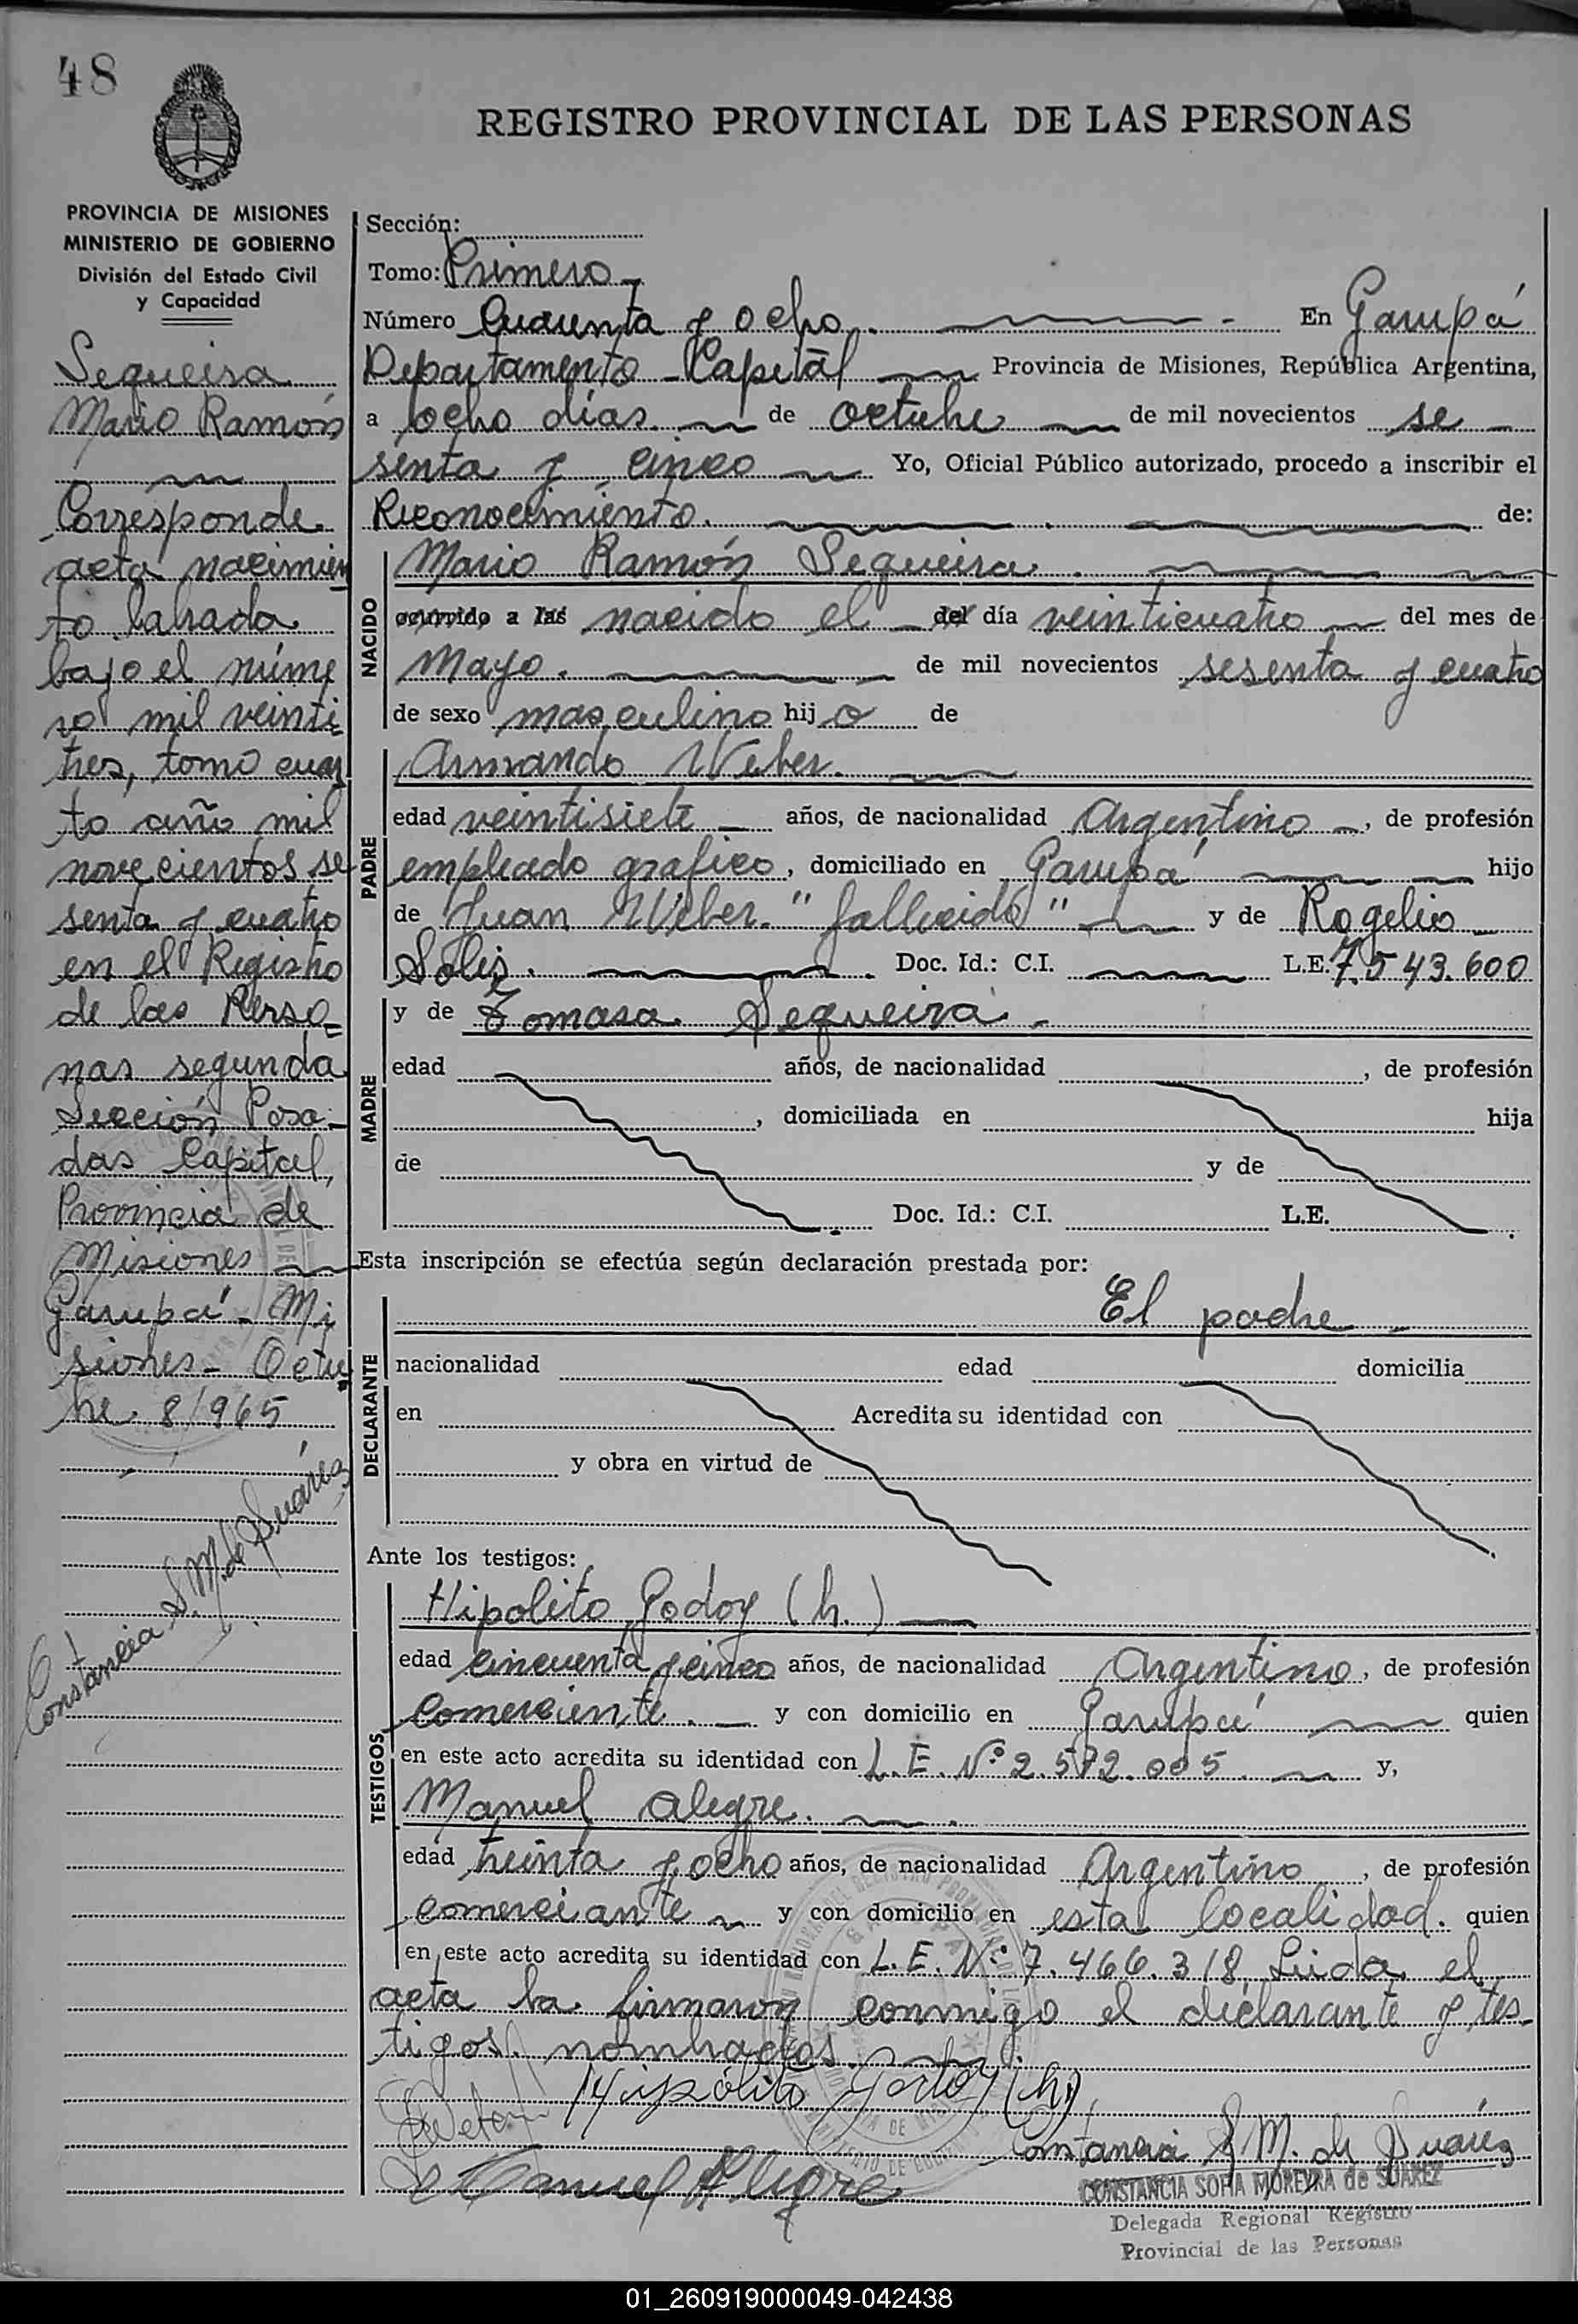 48
REGISTRO PROVINCIAL DE LAS PERSONAS
PROVINCIA DE MISIONES
MINISTERIO DE GOBIERNO
División del Estado Civil
y Capacidad
Sequeira
Mario Ramón
Corresponde
acta nacimien
to labrada
bajo el núme
ro mil veinti
tres, tomo cuar
to año mil
novecientos se
senta y cuatro
en el Registro
de las Perso=
nas segunda
Sección Posa-
das Capital,
Provincia de
Misiones
Garupá - Mi
siones - Octu
bre 8/965
Constancia S. M. de Suárez
Sección:
Tomo: Primero
Número Cuarenta y ocho. En Garupá
Departamento - Capital Provincia de Misiones, República Argentina,
a ocho días de octubre de mil novecientos se
senta y cinco Yo, Oficial Público autorizado, procedo a inscribir el
Reconocimiento. de:
NACIDO
Mario Ramón Sequeira.
ocurrido a las nacido el del día veinticuatro del mes de
Mayo. de mil novecientos sesenta y cuatro
de sexo masculino hijo de
PADRE
Armando Weber.
edad veintisiete años, de nacionalidad Argentino, de profesión
empleado grafico, domiciliado en Garupá hijo
de Juan Weber. "fallecido" y de Rogelio
Solis. Doc. Id.: C.I. L.E. 7.543.600
MADRE
y de Tomasa Sequeira.
edad años, de nacionalidad , de profesión
, domiciliada en hija
de y de
Doc. Id.: C.I. L.E.
Esta inscripción se efectúa según declaración prestada por:
DECLARANTE
El padre
nacionalidad edad domicilia
en Acredita su identidad con
y obra en virtud de
Ante los testigos:
TESTIGOS
Hipolito Godoy (h.)
edad cincuenta y cinco años, de nacionalidad Argentino, de profesión
Comerciente. y con domicilio en Garupá quien
en este acto acredita su identidad con L.E. Nº 2.572.005 y,
Manuel Alegre.
edad treinta y ocho años, de nacionalidad Argentino, de profesión
comerciante y con domicilio en esta localidad. quien
en este acto acredita su identidad con L.E. Nº 7.466.318. Leida el
acta la firmaron conmigo el declarante y tes-
tigos nombrados.
Hipólito Godoy (h)
Constancia S. M. de Suárez
Manuel Alegre
CONSTANCIA SOFIA MOREYRA de SUAREZ
Delegada Regional Registro
Provincial de las Personas
01_260919000049-042438